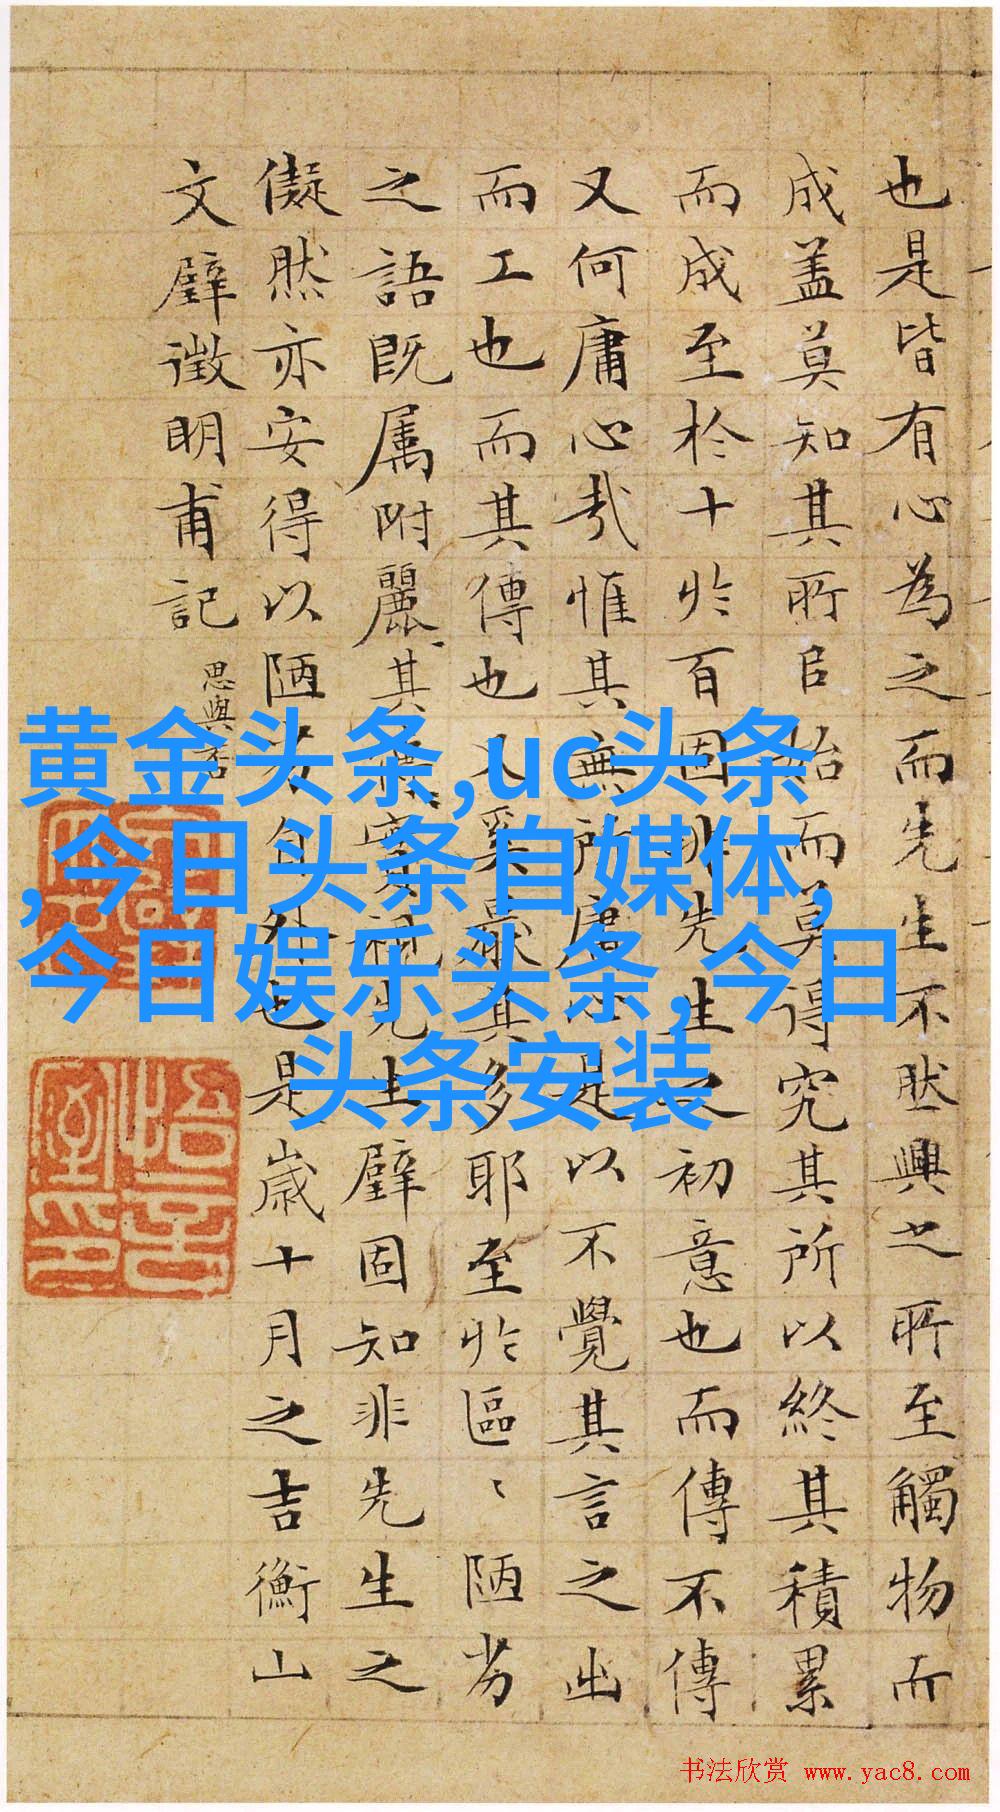 也是皆有心為之而先生不然興之所至觸物而
成盖莫知其所自始而莫得究其所以終其積累
而成至於十於百固非先生之初意也而傳不傳
又何庸心哉惟其無所庸心是以不覺其言之出
而工也而其傳也又奚最其多耶至於區〻陋劣
之語既属附麗其
先生璧固知非先生之
儗然亦安得以陋劣自外也是歲十月之吉衡山
文璧徵明甫記
思與
黄金头条,uc头条
,今日头条自媒体,
今日娱乐头条, 今日
头条安装
书法欣赏 www.yac8.com